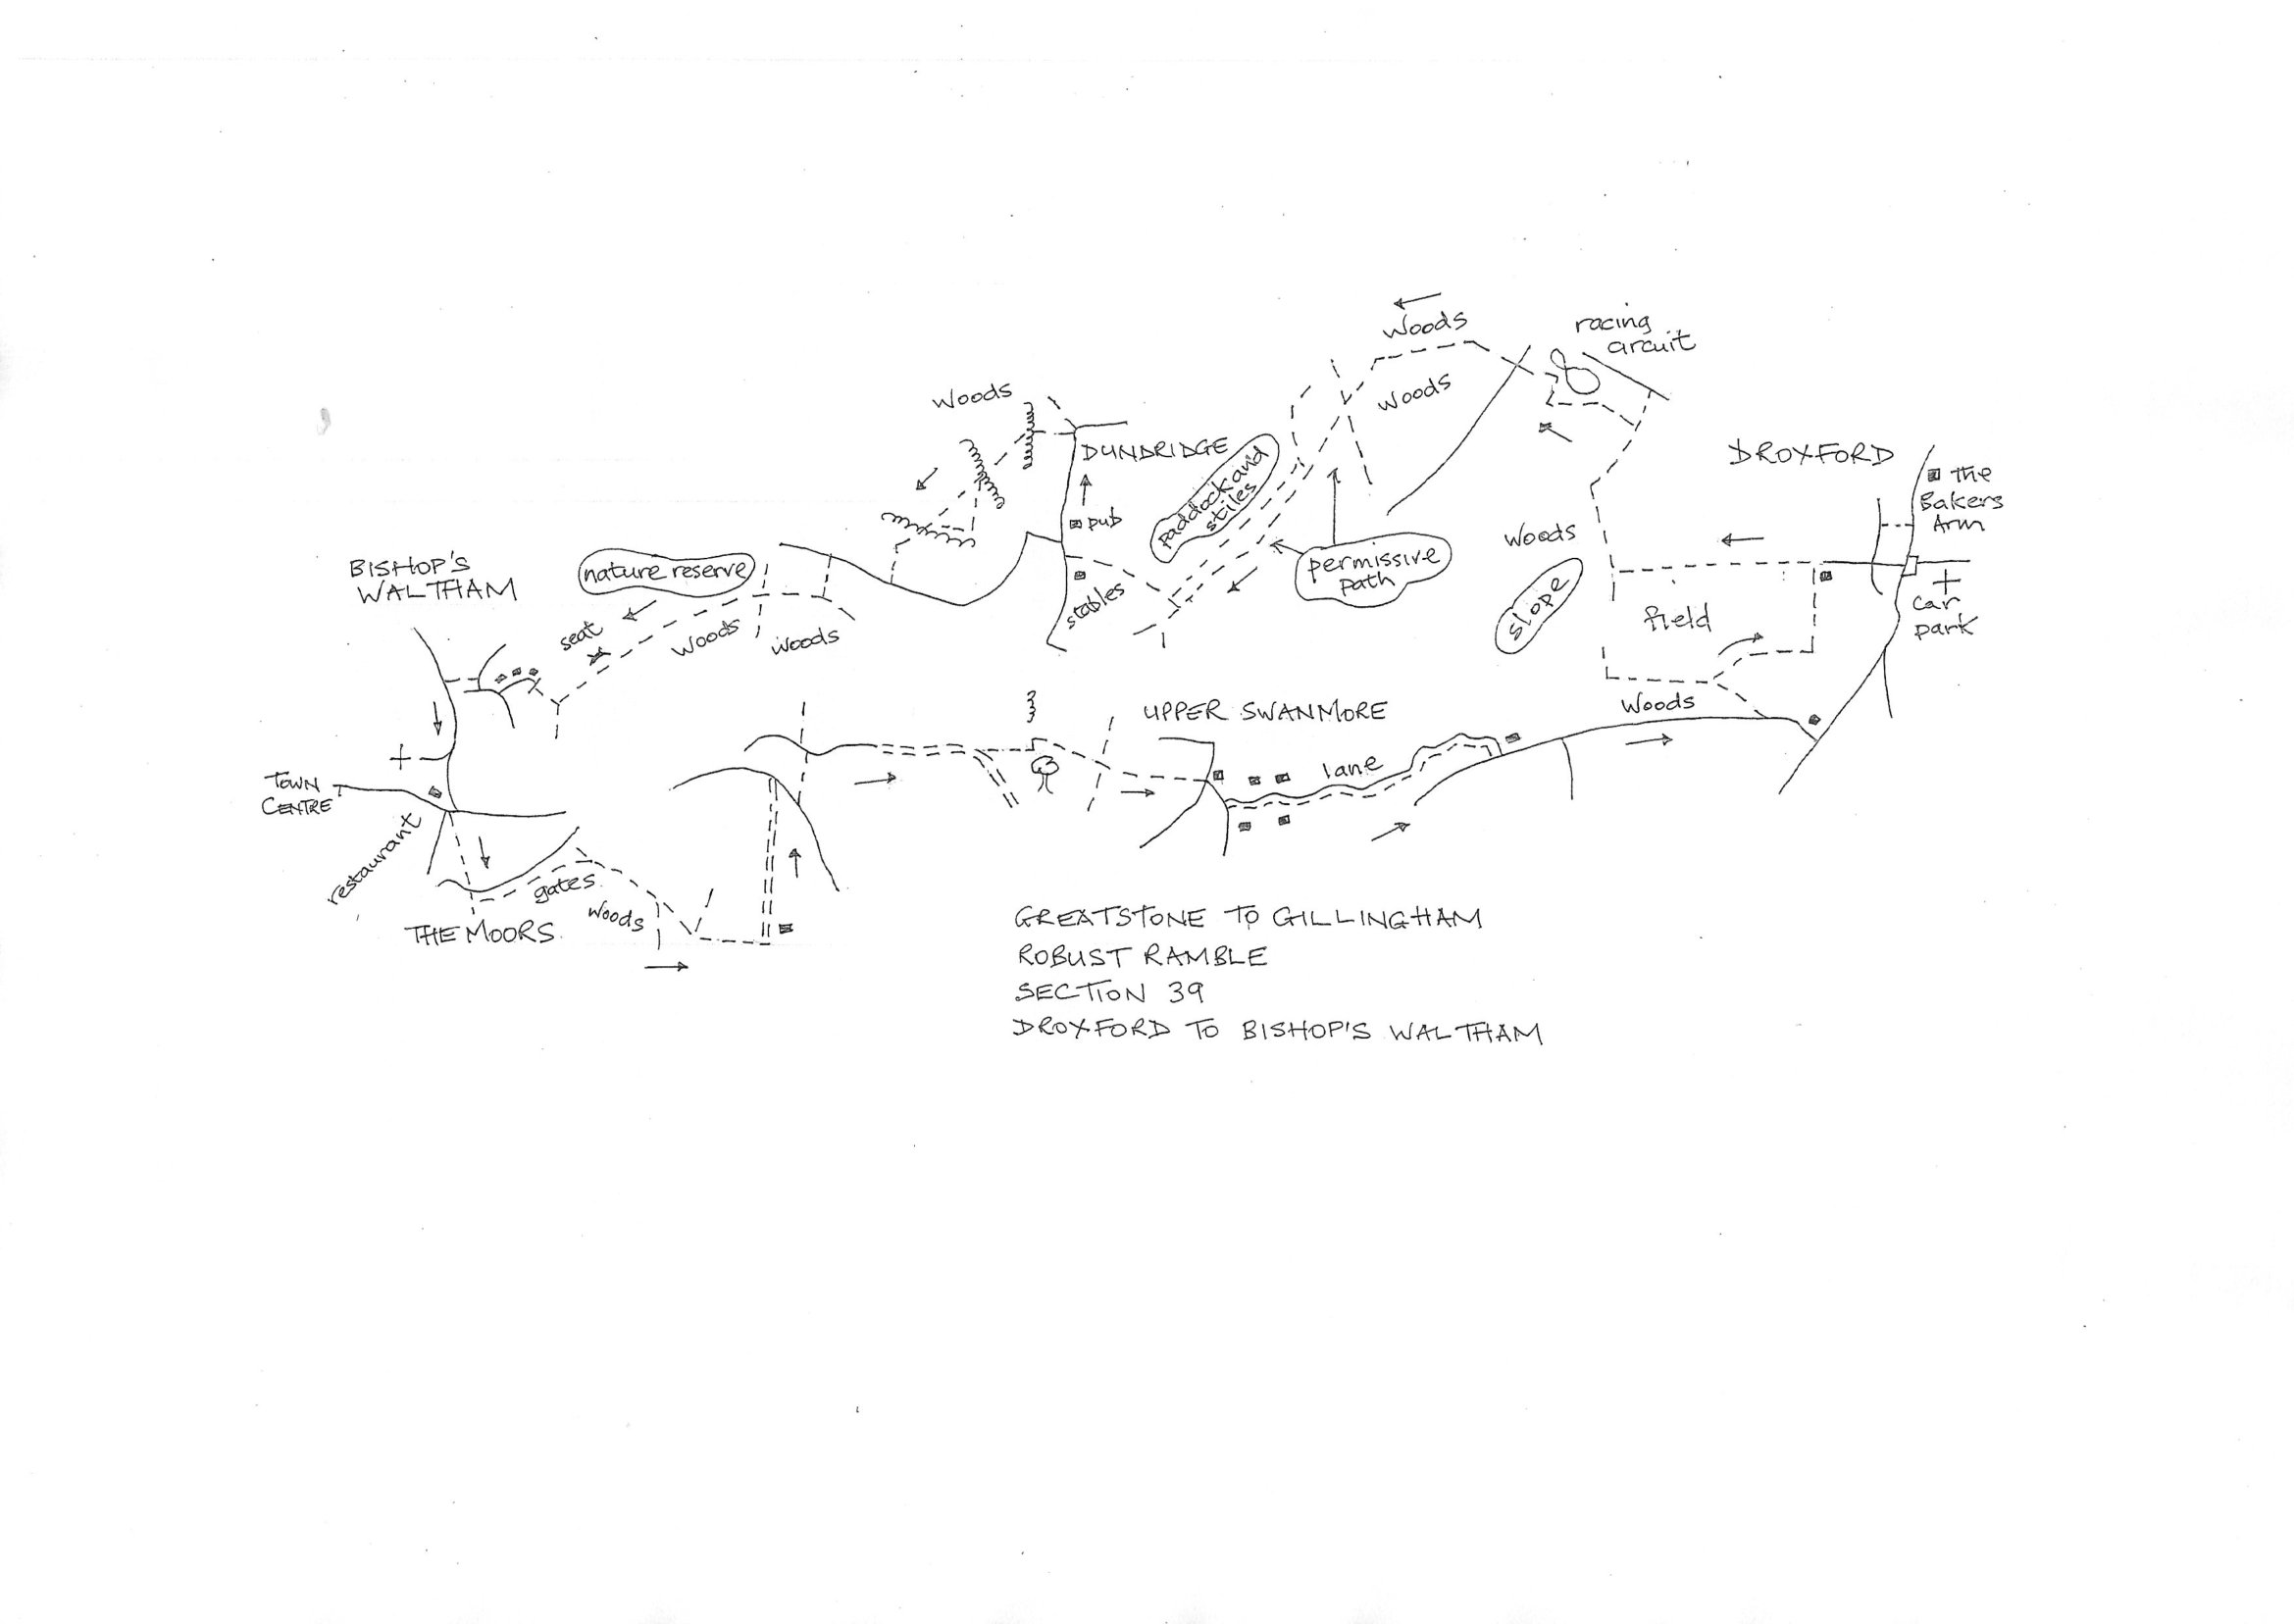 Woods
racing
circuit
Woods
Woods
DUNDRIDGE
DROXFORD
paddock and
stiles
the
Bakers
Arm
pub
Woods
permissive
path
BISHOP'S
WALTHAM
nature reserve
stables
slope
field
Car
park
seat
Woods
Woods
Woods
UPPER SWANMORE
lane
TOWN
CENTRE
restaurant
gates
Woods
THE MOORS.
GREATSTONE TO GILLINGHAM
ROBUST RAMBLE
SECTION 39
DROXFORD TO BISHOP'S WALTHAM